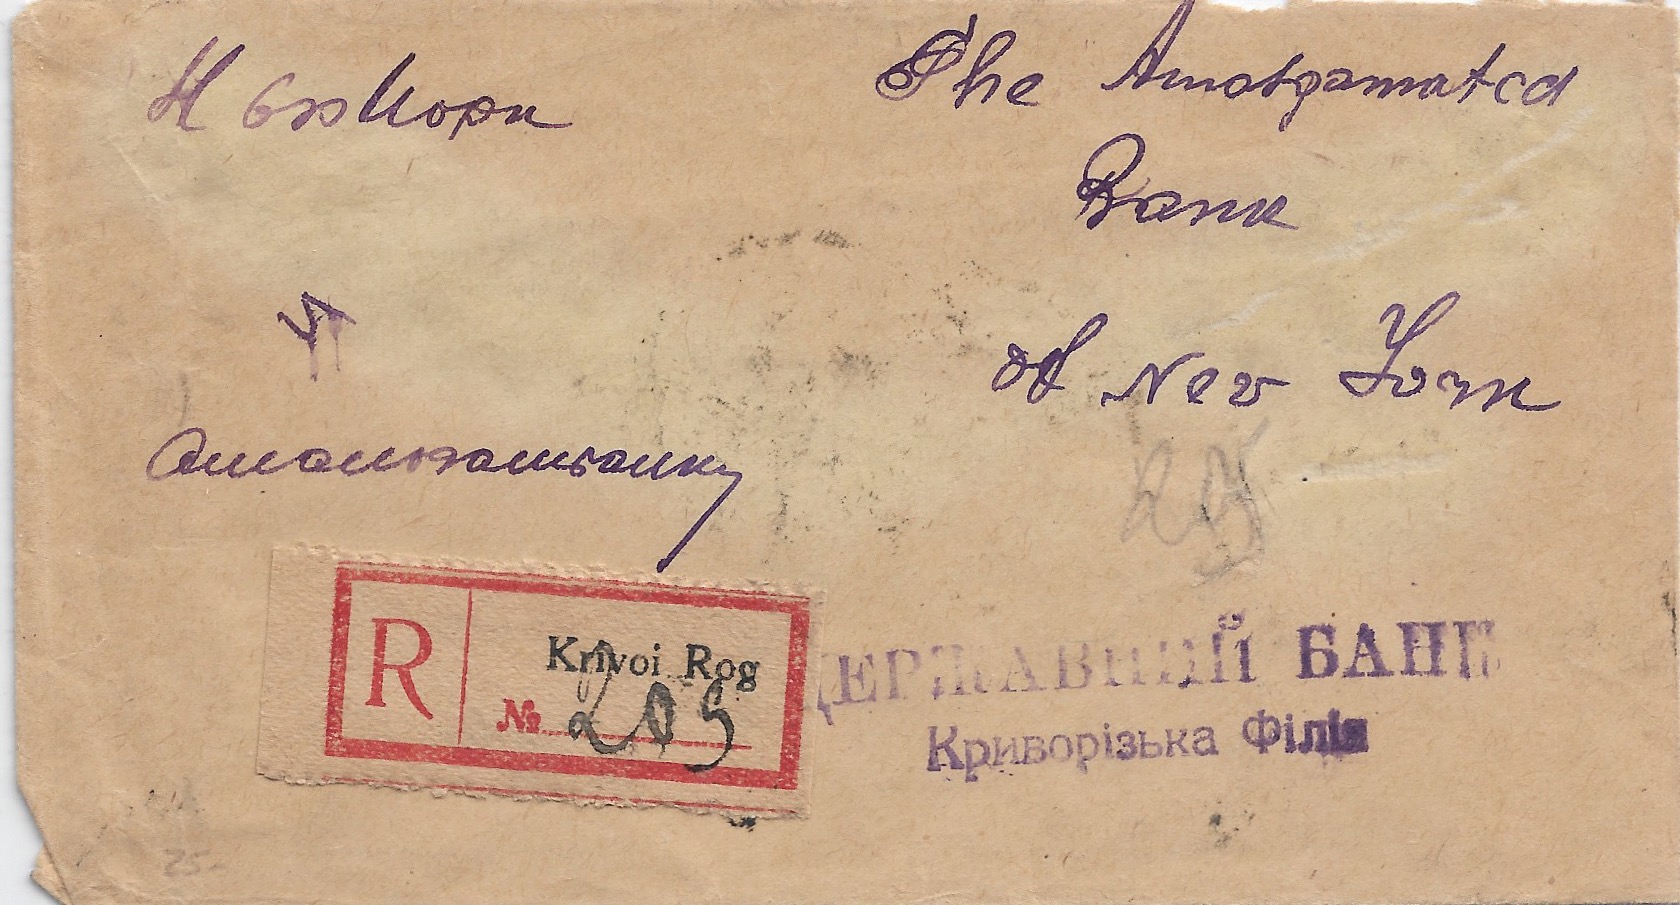 Нью Йорк
The Amalgamated
Bank
of New York
Амальгамбанку
205
R
Krivoi Rog
№ 205
ДЕРЖАВНИЙ БАНК
Криворізька Філія
25-